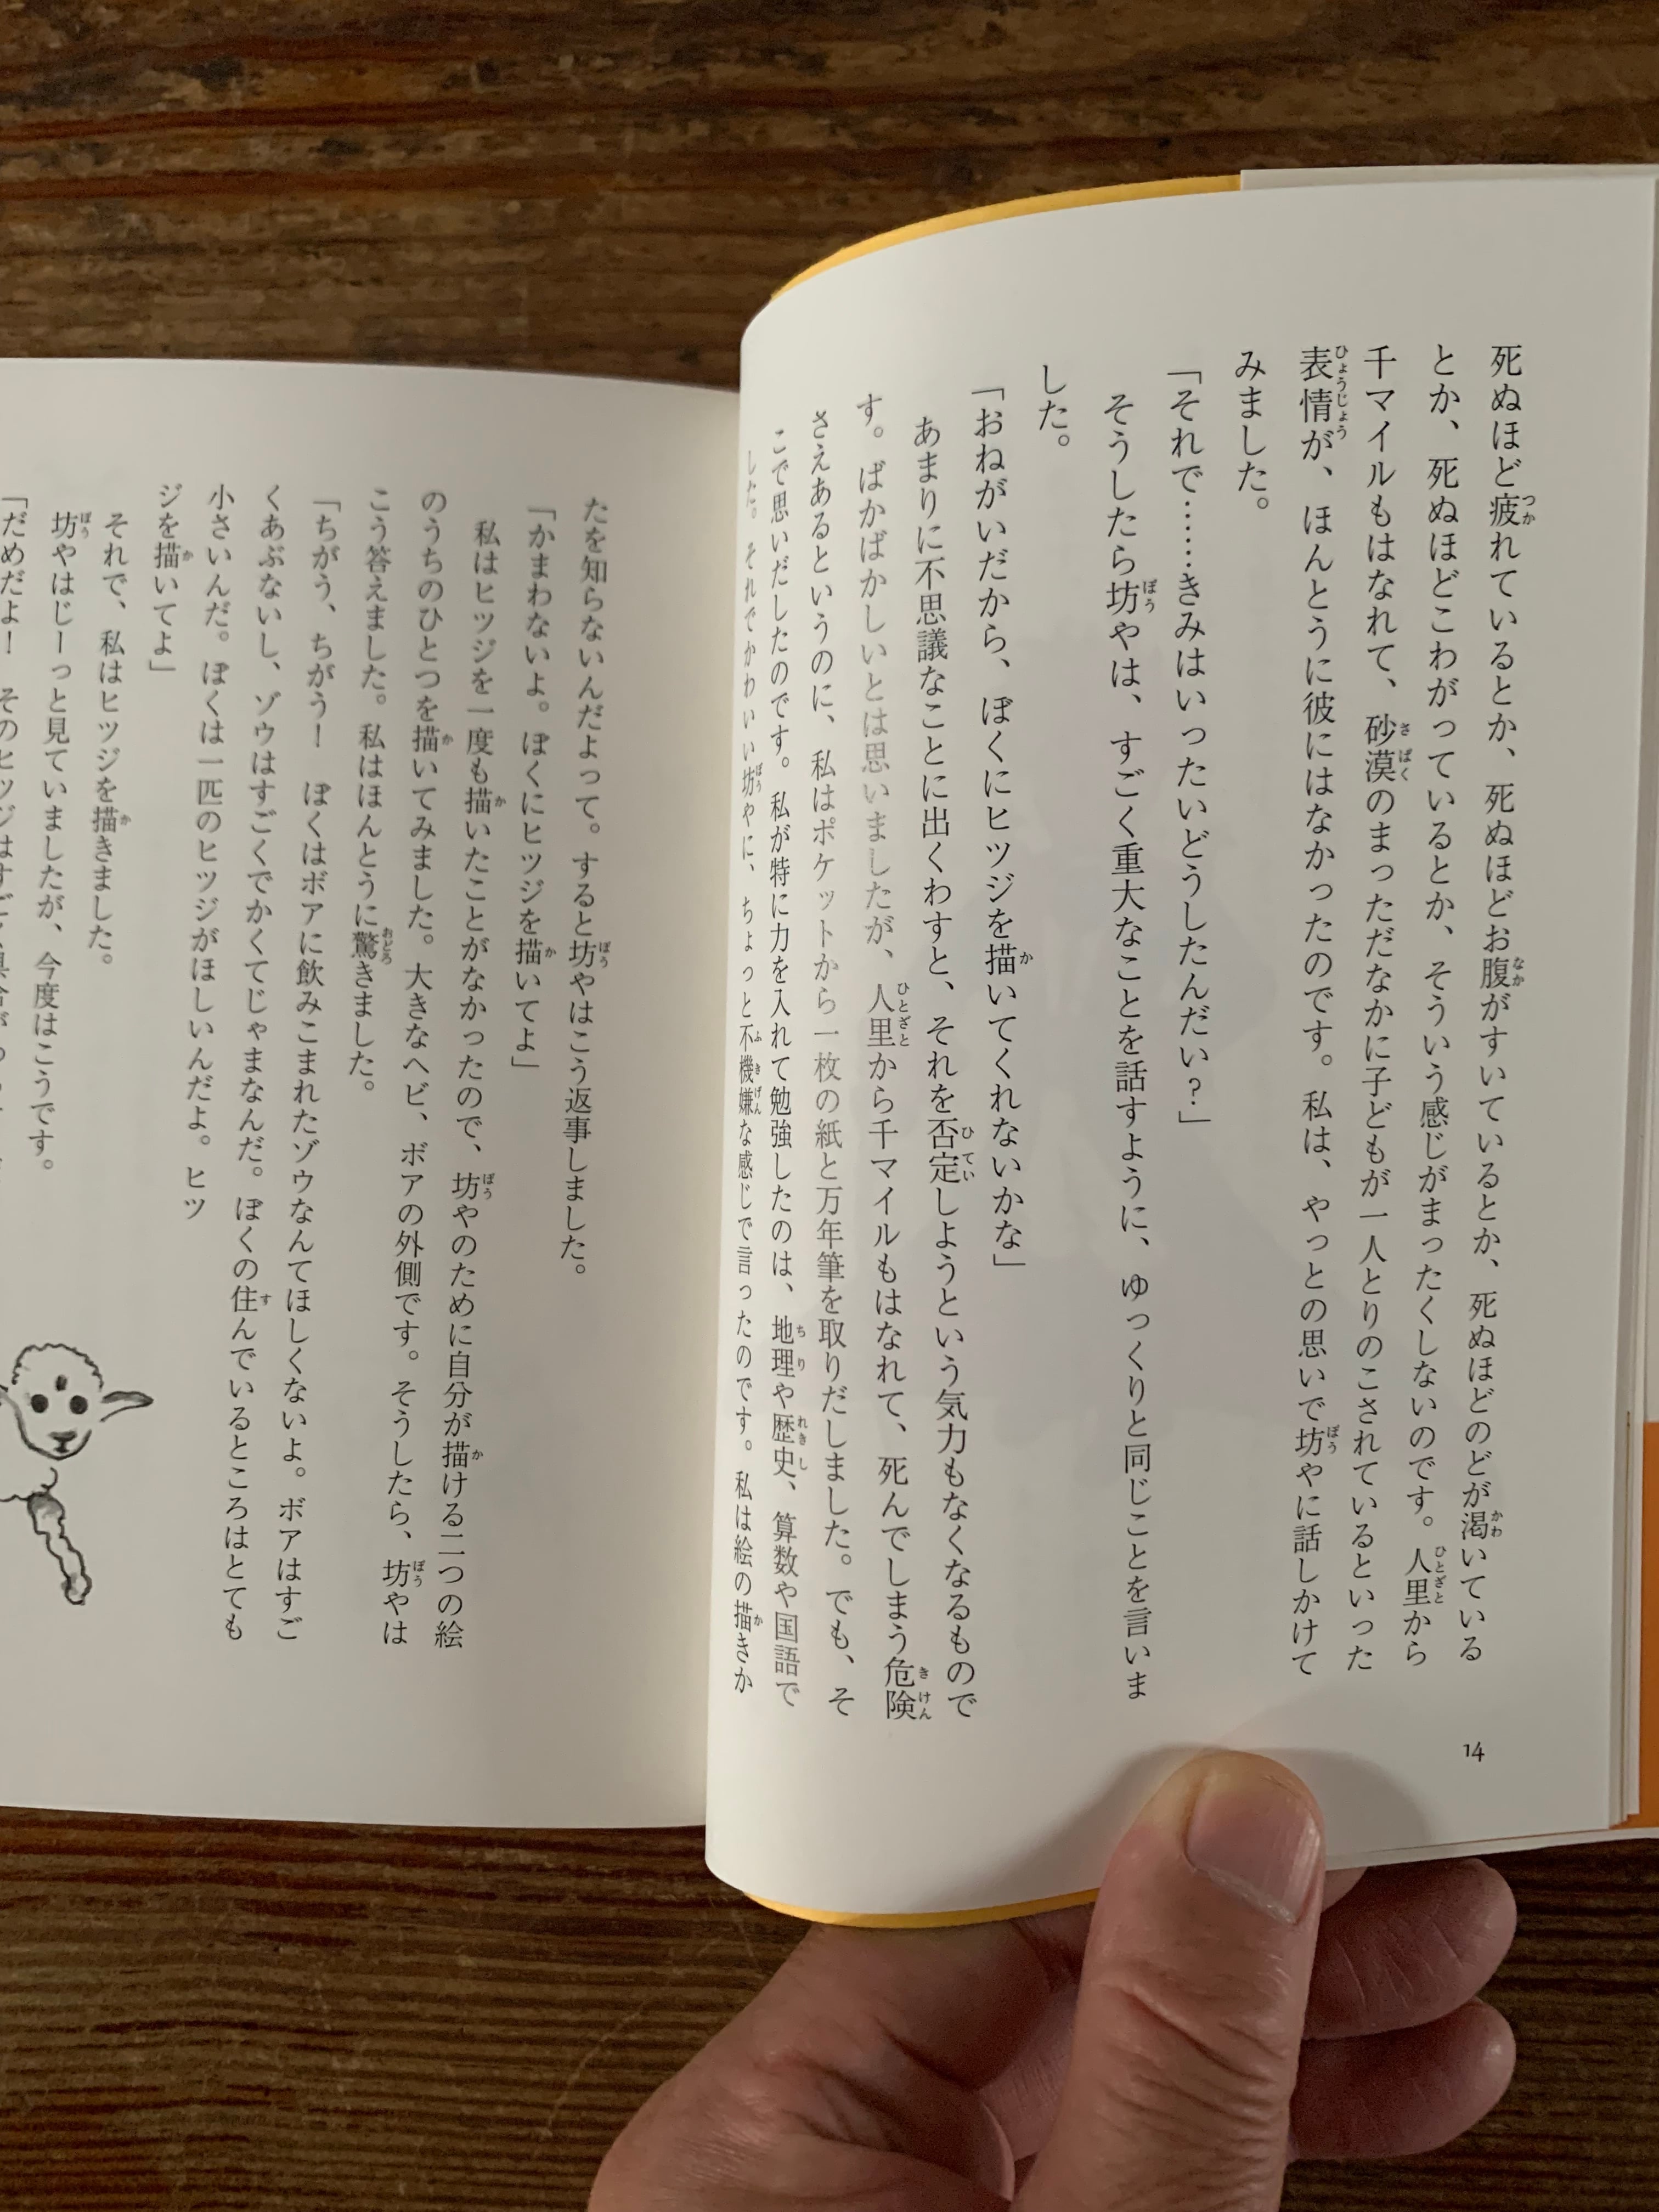 死ぬほど疲れているとか、死ぬほどお腹がすいているとか、死ぬほどのどが渇いている
とか、死ぬほどこわがっているとか、そういう感じがまったくしないのです。人里から
千マイルもはなれて、砂漠のまっただなかに子どもが一人とりのこされているといった
表情が、ほんとうに彼にはなかったのです。私は、やっとの思いで坊やに話しかけて
みました。
「それで……きみはいったいどうしたんだい?」
そうしたら坊やは、すごく重大なことを話すように、ゆっくりと同じことを言いま
した。
「おねがいだから、ぼくにヒツジを描いてくれないかな」
あまりに不思議なことに出くわすと、それを否定しようという気力もなくなるもので
す。ばかばかしいとは思いましたが、人里から千マイルもはなれて、死んでしまう危険
さえあるというのに、私はポケットから一枚の紙と万年筆を取りだしました。でも、そ
こで思いだしたのです。私が特に力を入れて勉強したのは、地理や歴史、算数や国語で
した。それでかわいい坊やに、ちょっと不機嫌な感じで言ったのです。私は絵の描きか
14
たを知らないんだよって。すると坊やはこう返事しました。
「かまわないよ。ぼくにヒツジを描いてよ」
私はヒツジを一度も描いたことがなかったので、坊やのために自分が描ける二つの絵
のうちのひとつを描いてみました。大きなヘビ、ボアの外側です。そうしたら、坊やは
こう答えました。私はほんとうに驚きました。
「ちがう、ちがう! ぼくはボアに飲みこまれたゾウなんてほしくないよ。ボアはすご
くあぶないし、ゾウはすごくでかくてじゃまなんだ。ぼくの住んでいるところはとても
小さいんだ。ぼくは一匹のヒツジがほしいんだよ。ヒツ
ジを描いてよ」
それで、私はヒツジを描きました。
坊やはじーっと見ていましたが、今度はこうです。
「だめだよ! そのヒツジはすご